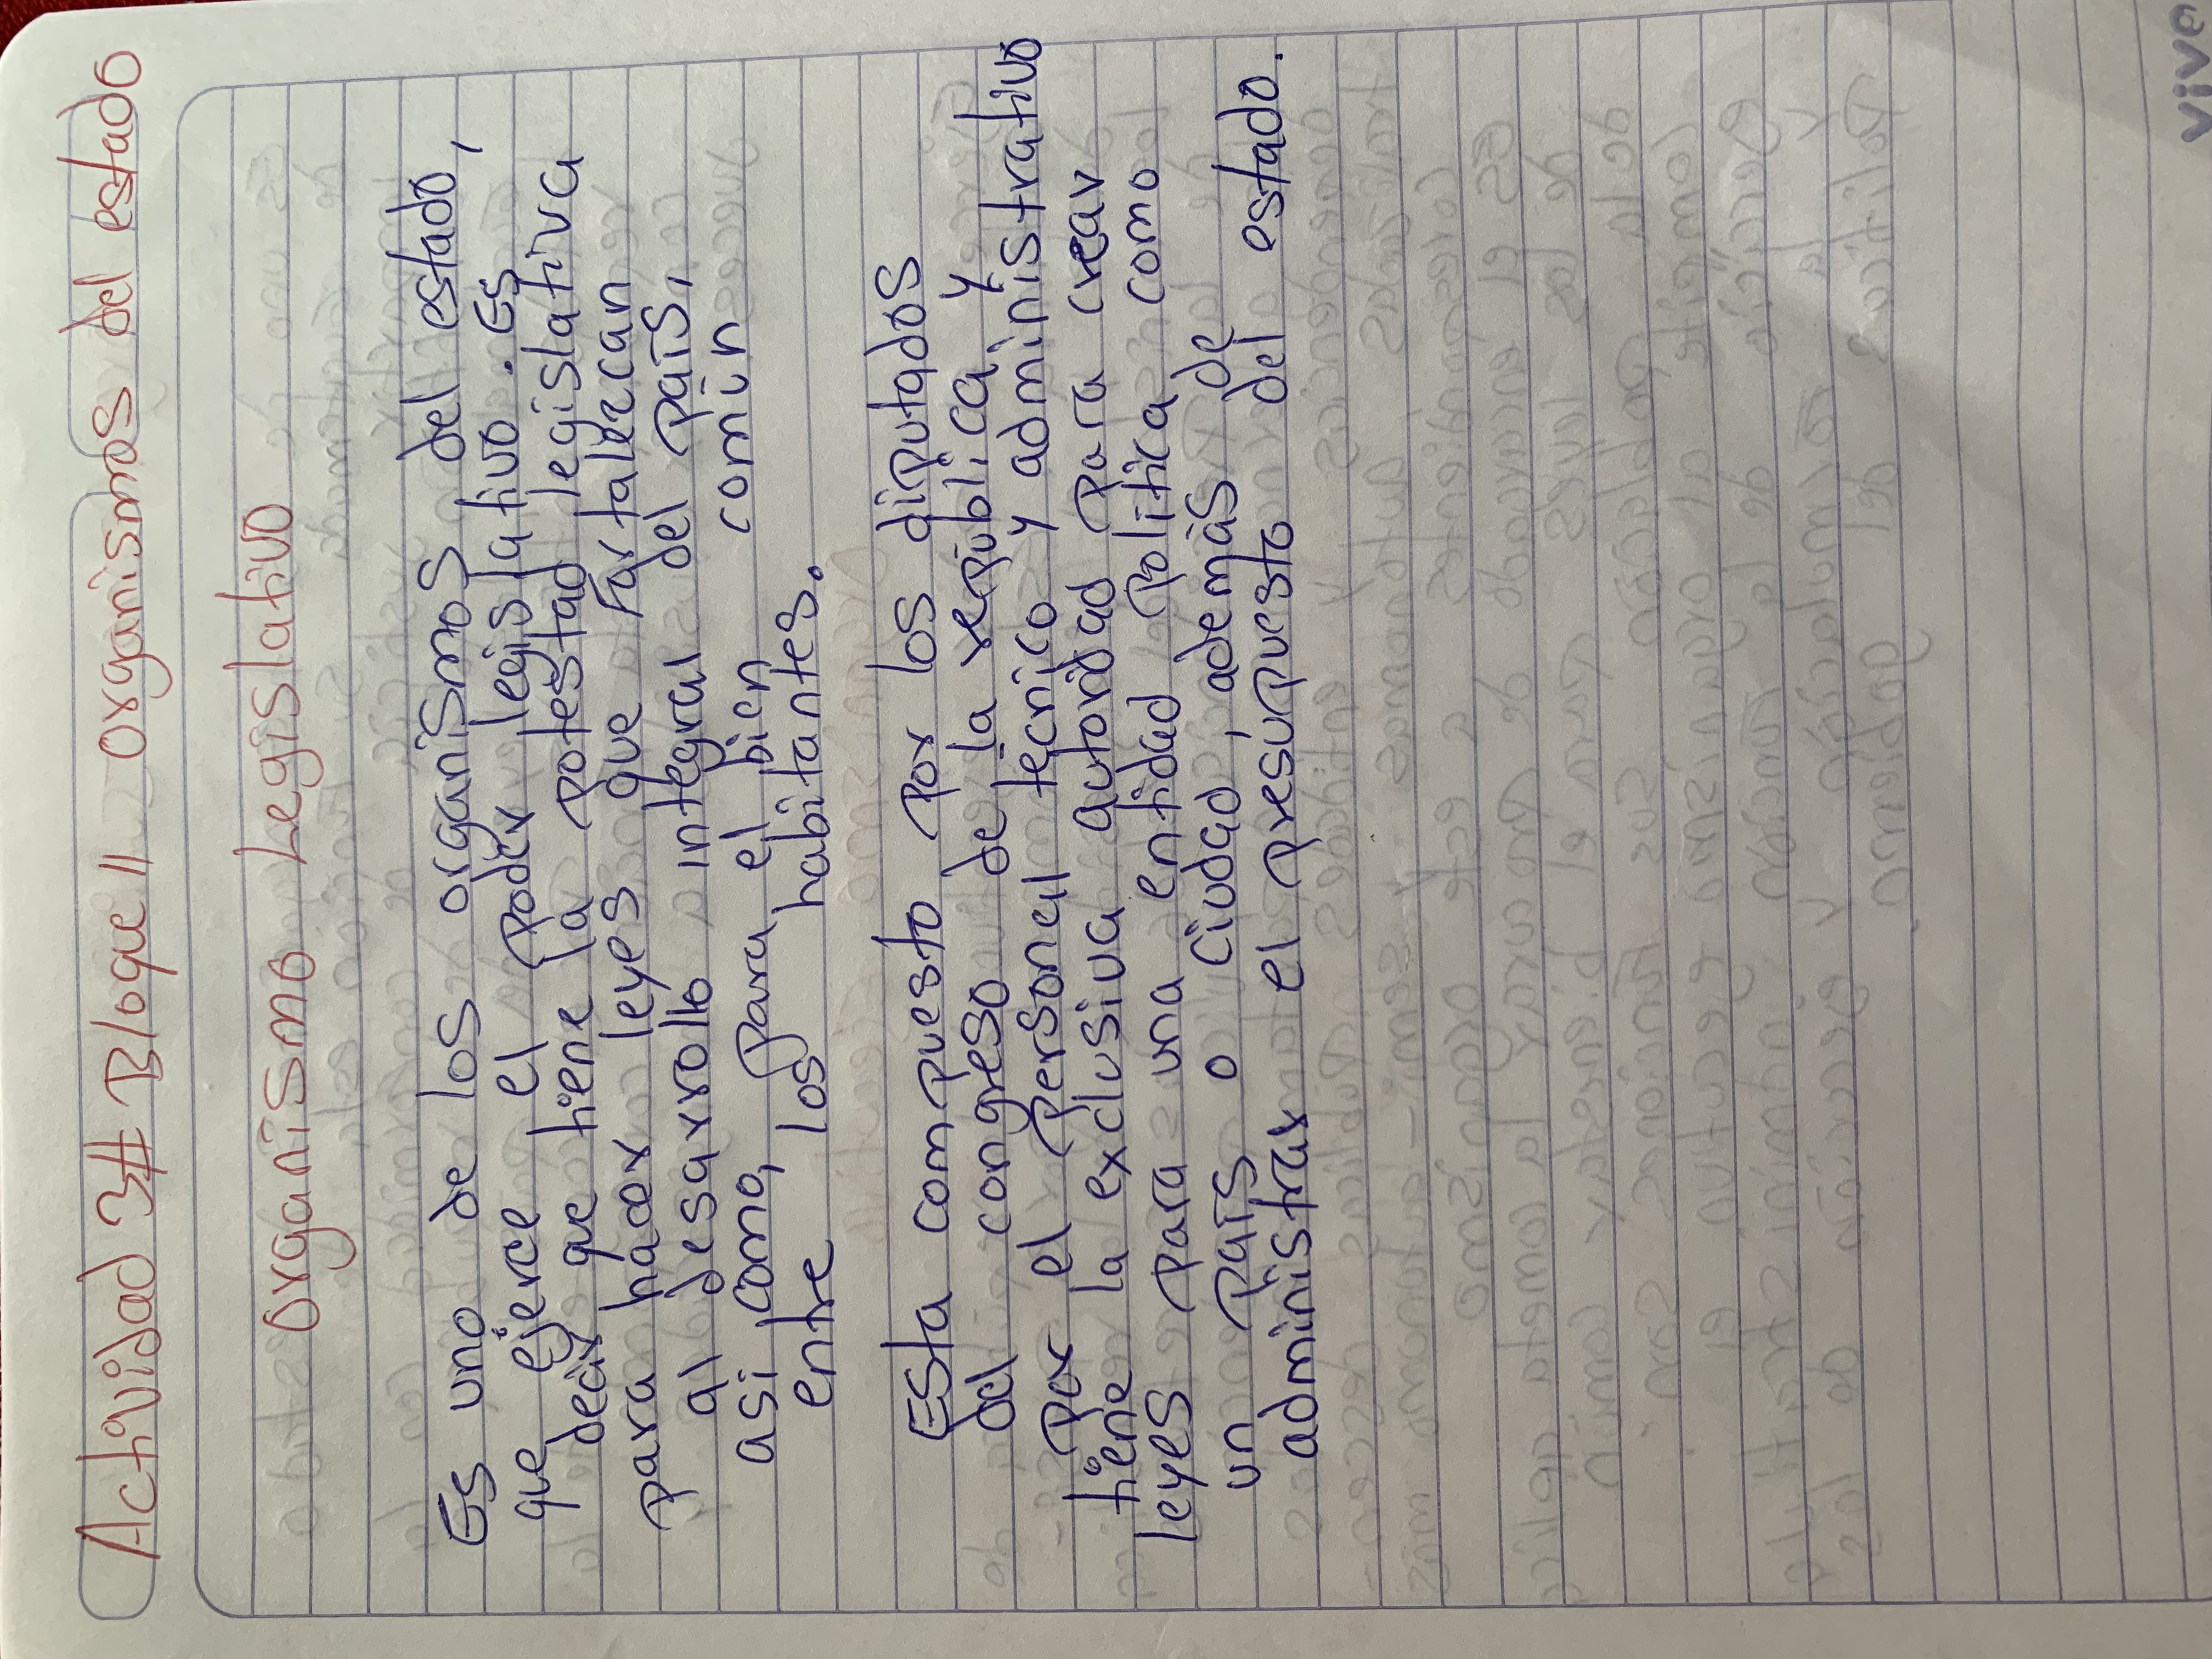 Actividad 3# Bloque II organismos del estado
Organismo Legislativo
Es uno de los organismos del estado,
que ejerce el Poder legislativo. Es
decir que tiene la potestad legislativa
para hacer leyes que Fortalezcan
al desarrollo integral del país,
asi como, para el bien comín
entre los habitantes.
Esta compuesto por los diputados
del congreso de la república y
Por el personal técnico y administrativo
tiene la exclusiva autoridad para crear
leyes para una entidad Política como
un País o ciudad, además de
administrar el presupuesto del estado.
viva